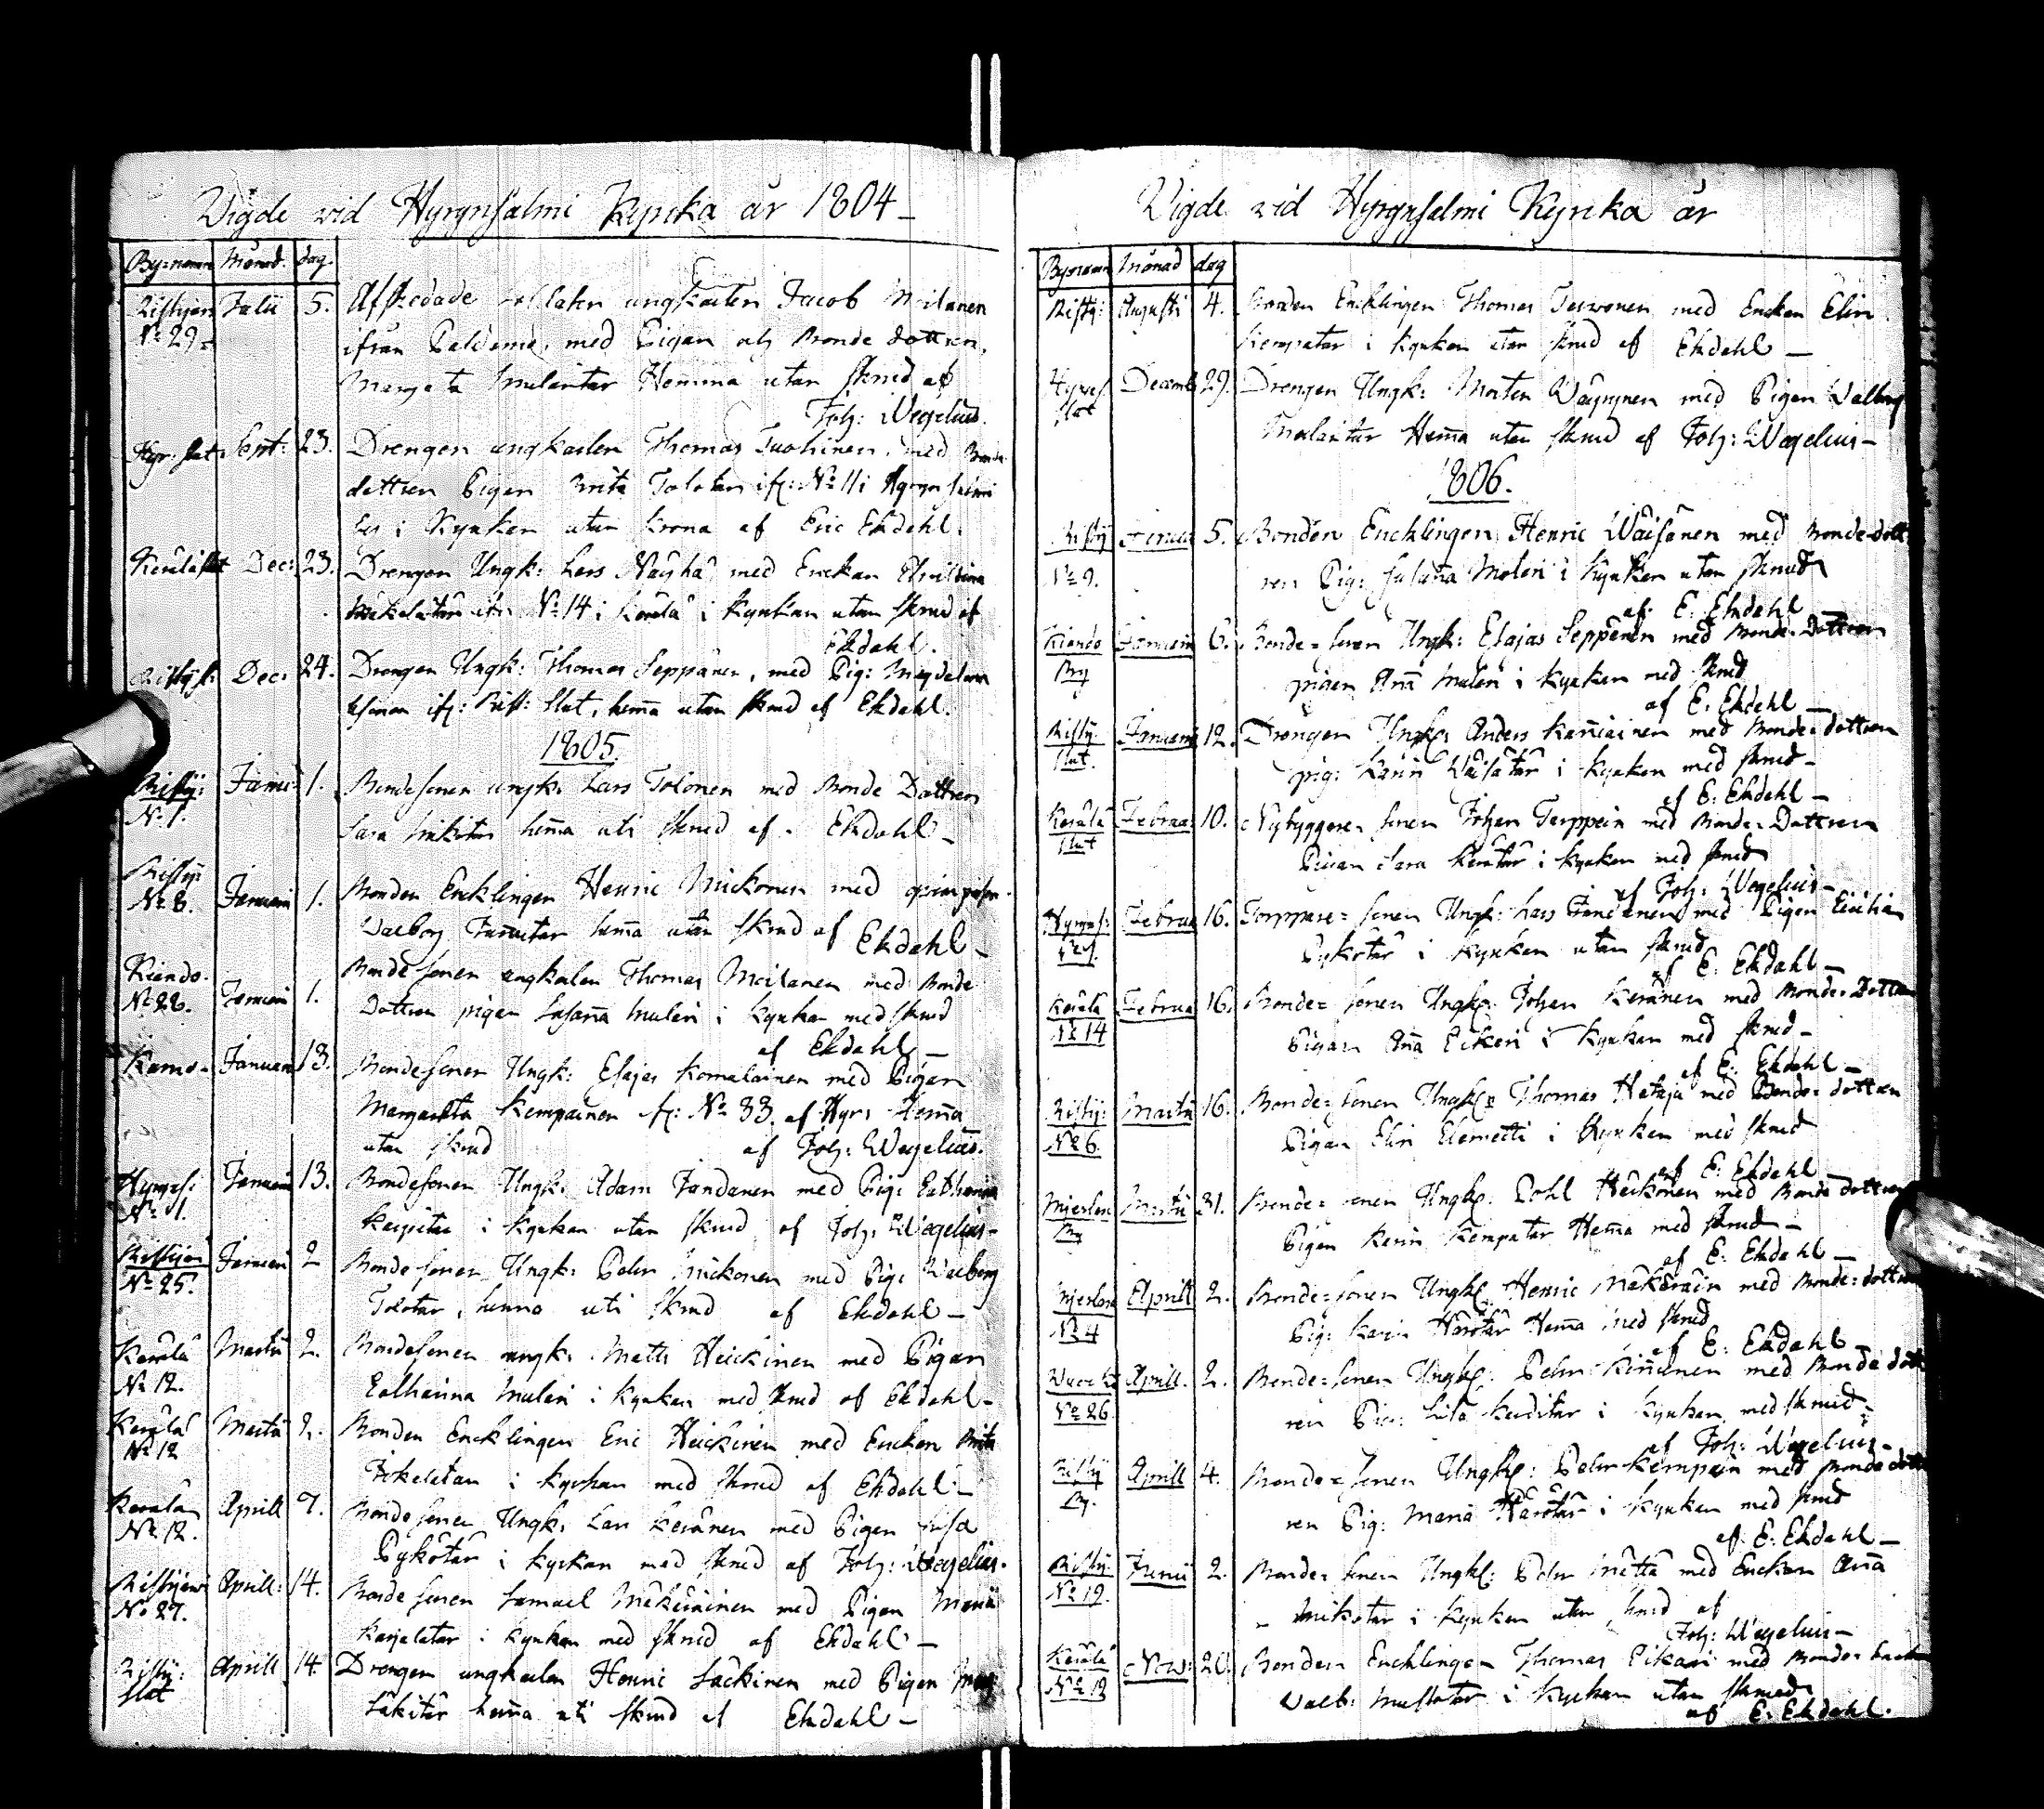 Vigde vid Hyrynsalmi Kyrcka år 1804 –
By=namn Månad. dag.
Ristijerv Julii 5. Afskedade Soldaten ungkarlen Jacob Moilanen
No 29 ifrån Paldamo, med Pigan och Bonde dottren,
Margeta Mulartar Hemma utan skrud af
Joh: Wegelius.
Hyr. slut Sept: 23. Drengen ungkarlen Thomas Tuohinen, med Bonde
dottren Pigan Brita Tolotar ifr: No 11 i Hyrynsalmi
by i Kyrkan utan krona af Eric Ekdahl.
Dec: 23. Drengen Ungk: Lars Näyhä med Enckan Christina
ifr: No 14 i Kerälä i Kyrkan utan skrud af
Ekdahl.
Ristij s: Dec: 24. Drengen Ungk: Thomas Seppänen, med Pig: Magdalena
ifr: Rist: slut, hema utan skrud af Ekdahl.
1805.
Ristij: Janu: 1. Bondesonen ungk: Lars Tolonen med Bonde Dottren
No 1. Sara hema uti skrud af Ekdahl –
Ristij:
No 8. Januari 1. Bonden Encklingen Henric Mickonen med
Walborg hema utan skrud af Ekdahl –
Kiando. Bonde sonen ungkarlen Thomas Moilanen med Bonde
No 28. Januari 1. Dottren pigan Susana Muleri i Kyrkan med skrud
af Ekdahl –
Januari 13. Bondesonen Ungk: Esajas Komulainen med Pigan
Margareta Kempainen fr: No 33. af Hyr: Hema
utan skrud af Joh: Wegelius.
Hyryns: Januari 13. Bondesonen Ungk: Adam Jandanen med Pig: Catharina
No 1. i Kyrkan utan skrud af Joh: Wegelius –
Ristijerv Januari 2 Bonde sonen Ungk: Pehr Mickonen med Pig: Walborg
No 25. Tolotar, hemma uti skrud af Ekdahl –
Kerälä Martii 2. Bondesonen ungk: Matts Heickinen med Pigan
No 12. Catharina Muleri i Kyrkan med skrud af Ekdahl –
Kerälä Martii 2. Bonden Encklingen Eric Heickinen med Enckan Brita
No 12 Jokeletar i Kyrkan med skrud af Ekdahl –
Kerälä Aprill 7. Bonde sonen Ungk: Lars Keränen med Pigan
No 12. Pykötär i kyrkan med skrud af Joh: Wegelius.
Ristijerv Aprill: 14. Bonde sonen Samuel Mäkeräinen med Pigan Maria
No 27. Karjalatar i kyrkan med skrud af Ekdahl –
Ristij: Aprill 14 Drengen ungkarlen Henric Säckinen med Pigan
slut Säkitär hema uti skrud af Ekdahl –
Vigde vid Hyrynsalmi Kyrcka år
Bynamn Månad dag
Ristij: Augusti 4. Bonden Encklingen Thomas Terwonen med Enckan Elin
Kempatar i Kyrkan utan skrud af Ekdahl –
Hyryns. Decemb 29. Drengen Ungk: Morten Wäyrynen med Pigan Walborg
slut Mulartar Hema utan skrud af Joh: Wegelius –
1806.
Ristij Januari 5. Bonden Encklingen Henric Wäisänen med Bonde-dott
No 9. ren Pig: Susana Moleri i Kyrkan utan skrud
af E: Ekdahl
Kiando Januarii 6. Bonde=sonen Ungk: Esajas Seppenen med Bonde-Dottren
By pigan Ana Muleri i kyrkan med skrud
af E: Ekdahl –
Ristij. Januarii 12. Drengen Ungk: Anders Kaniainen med Bonde=dottren
slut. pig: Karin Wäisätär i kyrkan med skrud –
af E: Ekdahl –
Kerälä Februa 10. Nybyggare=sonen Johan Terppein med Bonde=Dottren
slut Pigan Sara Kerätär i kyrkan med skrud
af Joh: Wegelius –
Hyryns: Februa 16. Torppare=sonen Ungk: Lars med Pigan Cicilia
Pykötär i kyrkan utan skrud
af E: Ekdahl –
Kerälä Februa 16. Bonde=sonen Ungk: Johan Keränen med Bonde=Dottren
No 14 Pigan Ana Eikeri i kyrkan med skrud –
af E: Ekdahl –
Ristij: Martii 16. Bonde=sonen Ungk: Thomas Hetaja med Bonde=dottren
No 6. Pigan Elin Clemetti i Kyrkan med skrud
af E: Ekdahl
Mieslax Martii 31. Bonde=sonen Ungk: Pohl Heikonen med Bonde dottren
By Pigan Karin Kempatar Hema med skrud –
af E: Ekdahl –
Mieslax Aprill 2. Bonde=sonen Ungk: Henric Mäkeräin med Bonde=dottren
No 4 Pig: Karin Härötär Hema med skrud
af E: Ekdahl –
Aprill. 2. Bonde=sonen Ungk: Pehr Kinunen med Bonde dott
No 26 ren Pig: Lisa i kyrkan med skrud –
af Joh: Wegelius –
Ristij Aprill 4. Bonde=sonen Ungk: Pehr Kempein med Bonde dott
By. ren Pig: Maria Härötär i kyrkan med skrud
af E: Ekdahl –
Ristij: Junii 2. Bonde sonen Ungk: Pehr med Enckan Ana
No 19. Mikotar i Kyrkan utan skrud af
Joh: Wegelius –
Kerälä Nov: 20. Bonden Encklingen Thomas Eikari med Bonde=
No 12 Walb: Mustotar i kyrkan utan skrud
af E: Ekdahl.